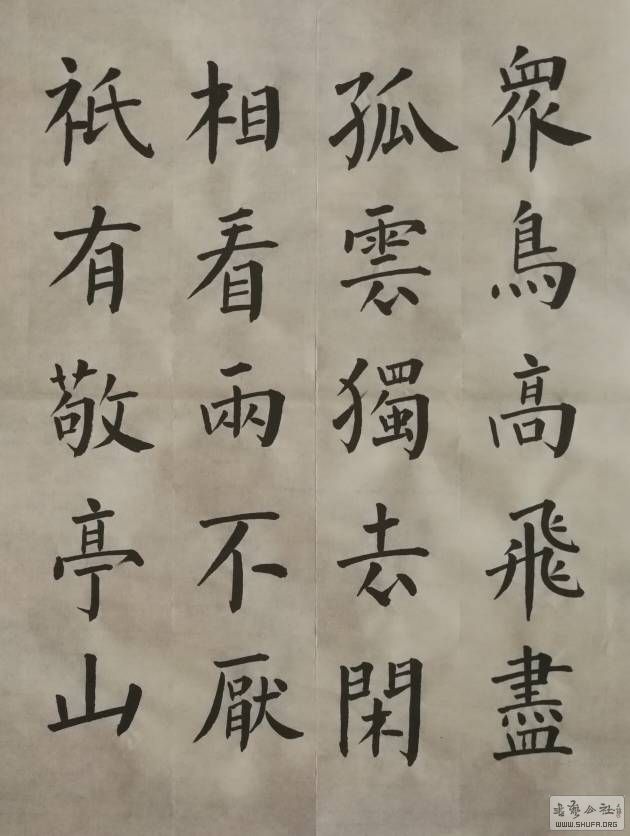 眾鳥高飛盡
孤雲獨去閑
相看兩不厭
祇有敬亭山
WWW.SHUFA.ORG